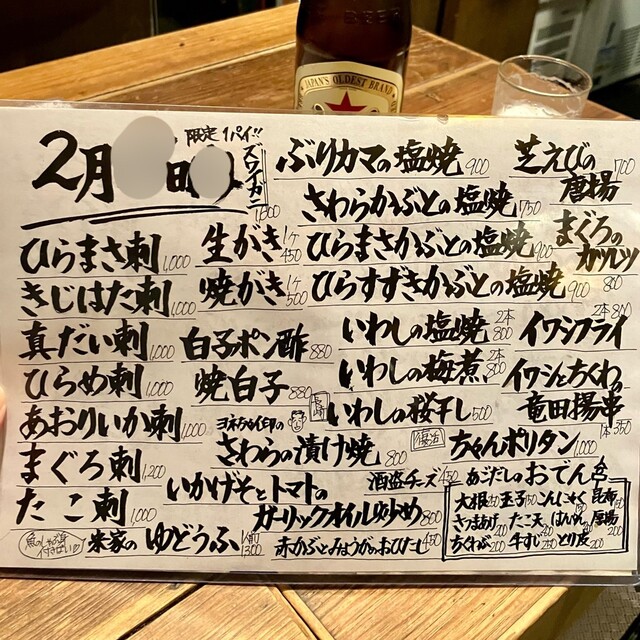 JAPAN'S OLDEST BRAND
2月 日
限定1パイ!!
ズワイガニ
1,500
ひらまさ刺 1,000
きじはた刺 1,000
真だい刺 1,000
ひらめ刺 1,000
あおりいか刺 1,000
まぐろ刺 1,200
たこ刺 1,000
生がき 1ケ 450
焼がき 1ケ 500
白子ポン酢 880
焼白子 880
ヨネクセイ印の
さわらの漬け焼 800
いかげそとトマトの
ガーリックオイル炒め 800
米家のゆどうふ 1人前 300
ぶりカマの塩焼 900
さわらかぶとの塩焼 750
ひらまさかぶとの塩焼 900
ひらすずきかぶとの塩焼 900
いわしの塩焼 2本 800
いわしの梅煮 2本 800
長崎 いわしの桜干し 500
酒盗チーズ 450
赤かぶとみょうがのおひたし 450
芝えびの
唐揚 700
まぐろの
カツレツ 800
イワシフライ 2本 800
イワシとちくわの
竜田揚串 1本 350
復活 ちゃんポリタン 1,000
あごだしのおでん
大根 玉子 こんにゃく 昆布
さつまあげ たこ天 はんぺん 唐揚
ちくわぶ 200 牛すじ 250 とり皮 200